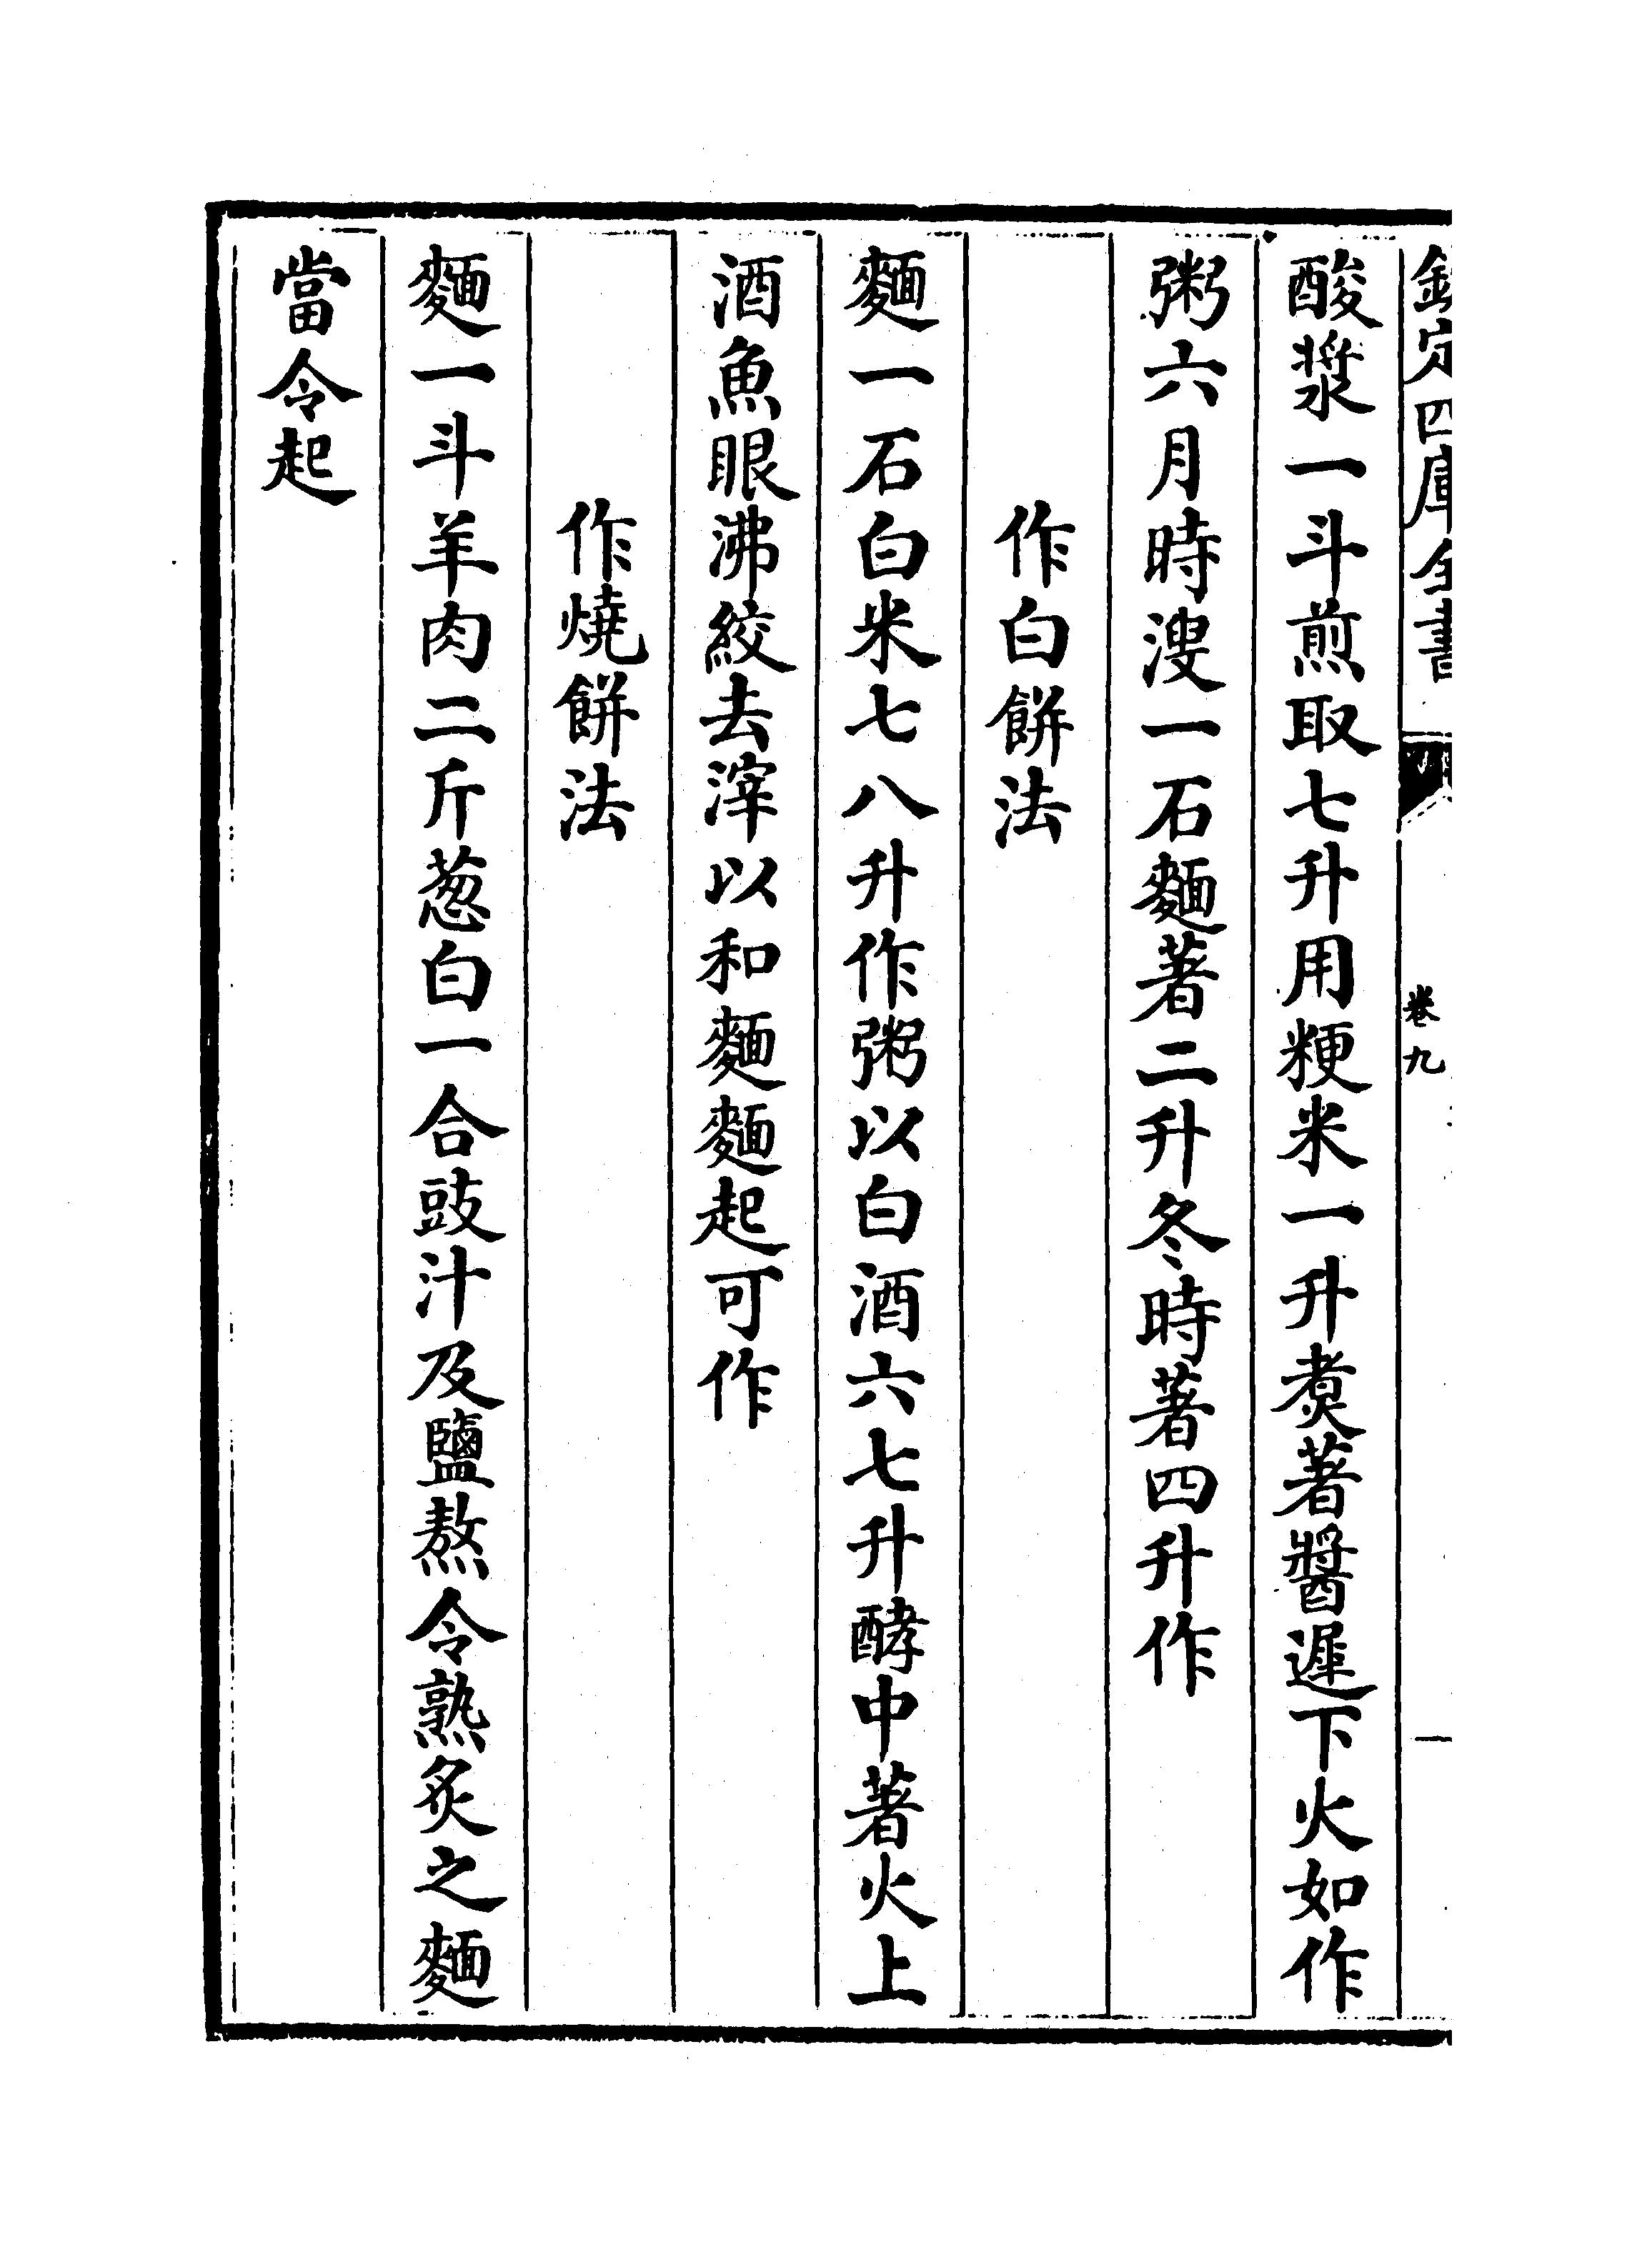 欽定四庫全書
卷九
一
酸漿一斗煎取七升用粳米一升煮著醬遲下火如作
粥六月時溲一石麵著二升冬時著四升作
作白餅法
麵一石白米七八升作粥以白酒六七升酵中著火上
酒魚眼沸絞去滓以和麵麵起可作
作燒餅法
麵一斗羊肉二斤葱白一合豉汁及鹽熬令熟炙之麵
當令起